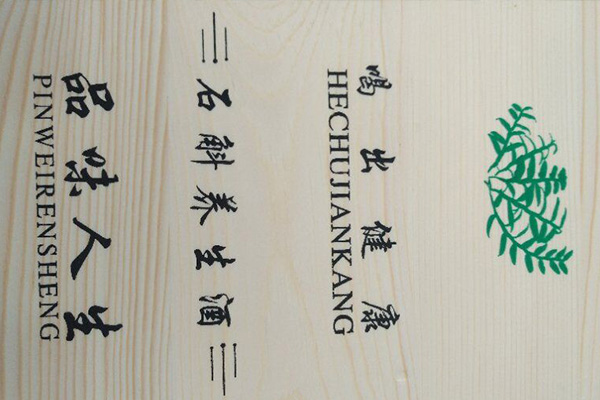 喝出健康
HECHUJIANKANG
石斛养生酒
品味人生
PINWEIRENSHENG